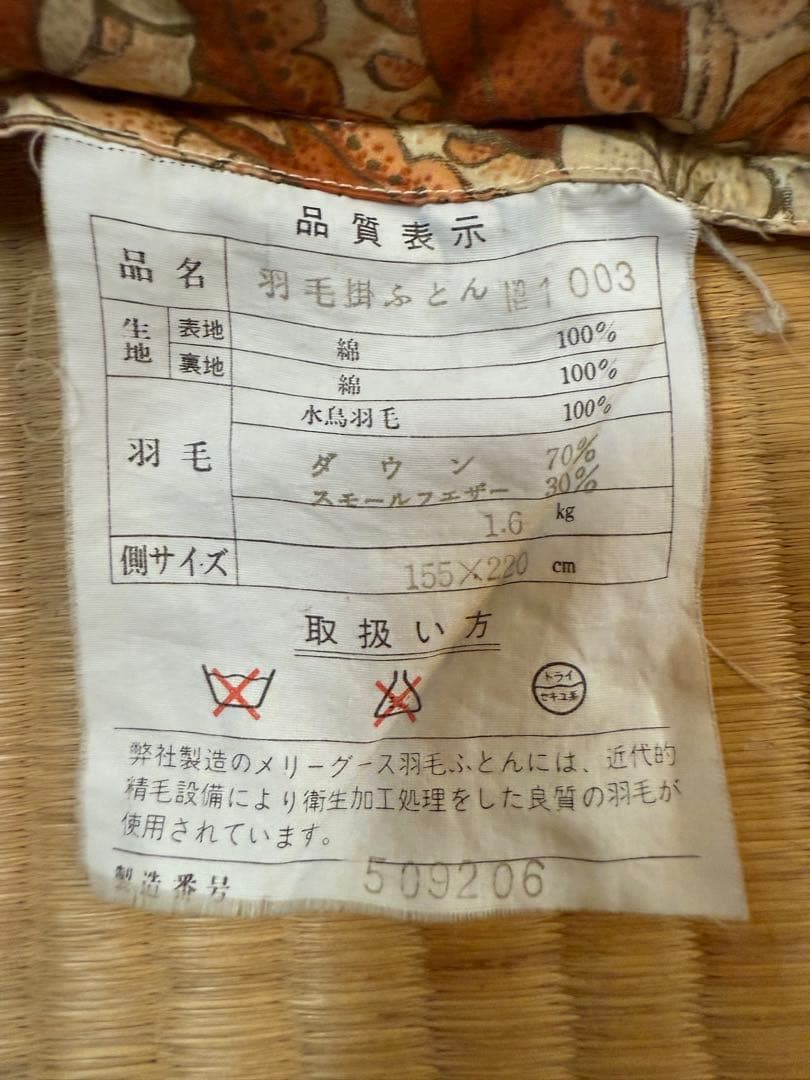 品質表示
品名 羽毛掛ふとん 1003
生地 表地 綿 100%
裏地 綿 100%
羽毛 水鳥羽毛 100%
ダウン 70%
スモールフェザー 30%
1.6 kg
側サイズ 155×220 cm
取扱い方
ドライ
セキユ系
弊社製造のメリーグース羽毛ふとんには、近代的
精毛設備により衛生加工処理をした良質の羽毛が
使用されています。
製造番号 509206